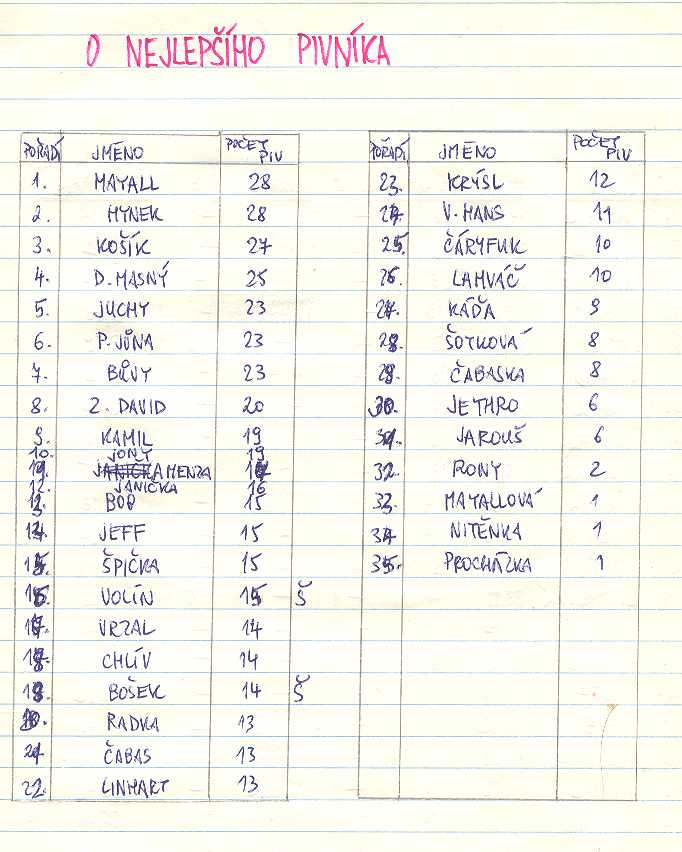 O NEJLEPŠÍHO PIVNÍKA
POŘADÍ JMÉNO POČET PIV
1. MAYALL 28
2. HYNEK 28
3. KOŠÍK 27
4. D. MASNÝ 25
5. JUCHY 23
6. P. JŮNA 23
7. BŮVY 23
8. Z. DAVID 20
9. KAMIL 19
10. JONY 19
11. AMENZA
12. JANIČKA 16
13. BOB 15
14. JEFF 15
15. ŠPIČKA 15
16. VOLÍN 15 Š
17. VRZAL 14
18. CHLÍV 14
19. BOŠEK 14 Š
20. RADKA 13
21 ČABAS 13
22. LINHART 13
POŘADÍ JMÉNO POČET PIV
23. KRÝSL 12
24. V. HANS 11
25. ČÁRYFUK 10
26. LAMVÁČ 10
27. KÁĎA 9
28. ŠOTKOVÁ 8
29. ČABASKA 8
30. JETHRO 6
31. JAROUŠ 6
32. RONY 2
33. MAYALLOVÁ 1
34 NITĚNKA 1
35. PROCHÁZKA 1